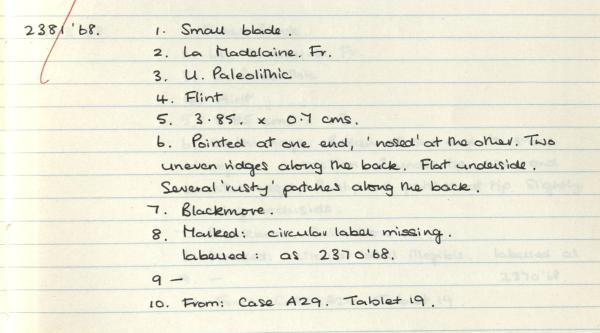 2381'68. 1. Small blade.
2. La Madelaine. Fr.
3. U. Paleolithic
4. Flint
5. 3.85. x 0.7 cms.
6. Pointed at one end, 'nosed' at the other. Two
uneven ridges along the back. Flat underside.
Several 'rusty' patches along the back.
7. Blackmore.
8. Marked: circular label missing.
labelled: as 2370'68.
9 —
10. From: Case A29. Tablet 19.